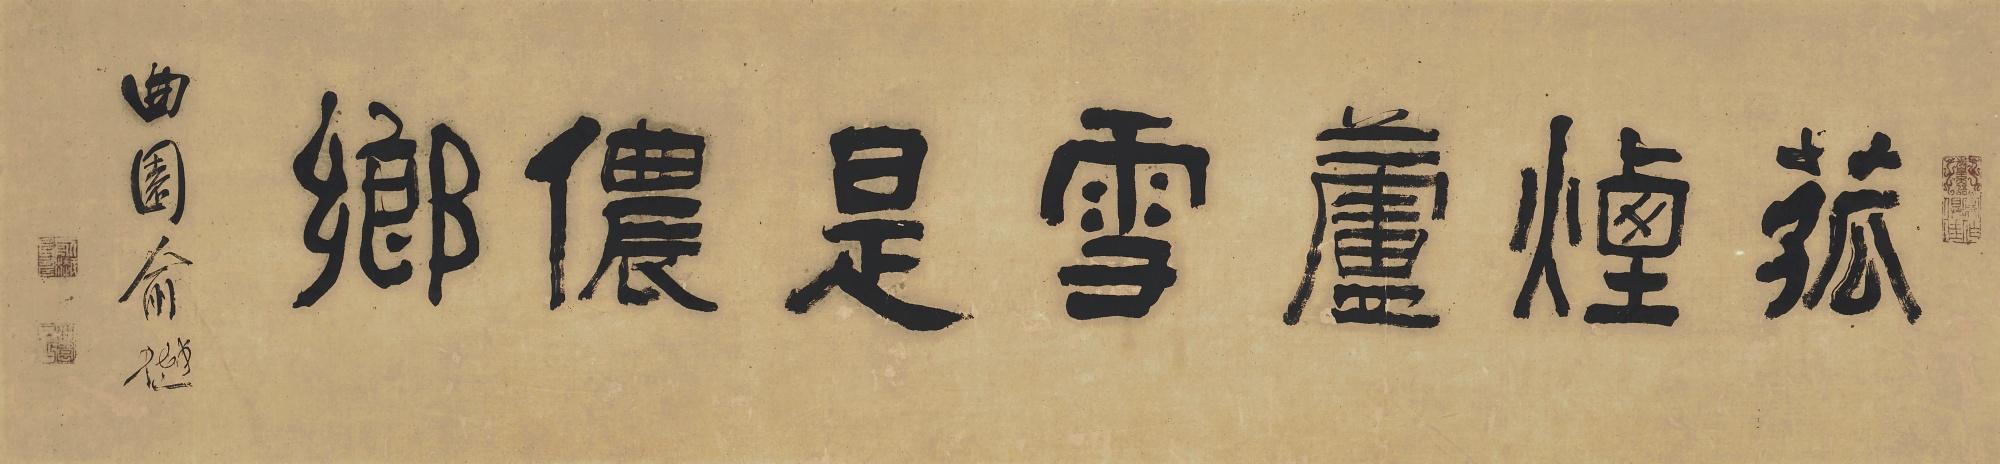 菰煙蘆雪是儂鄉
曲園俞樾